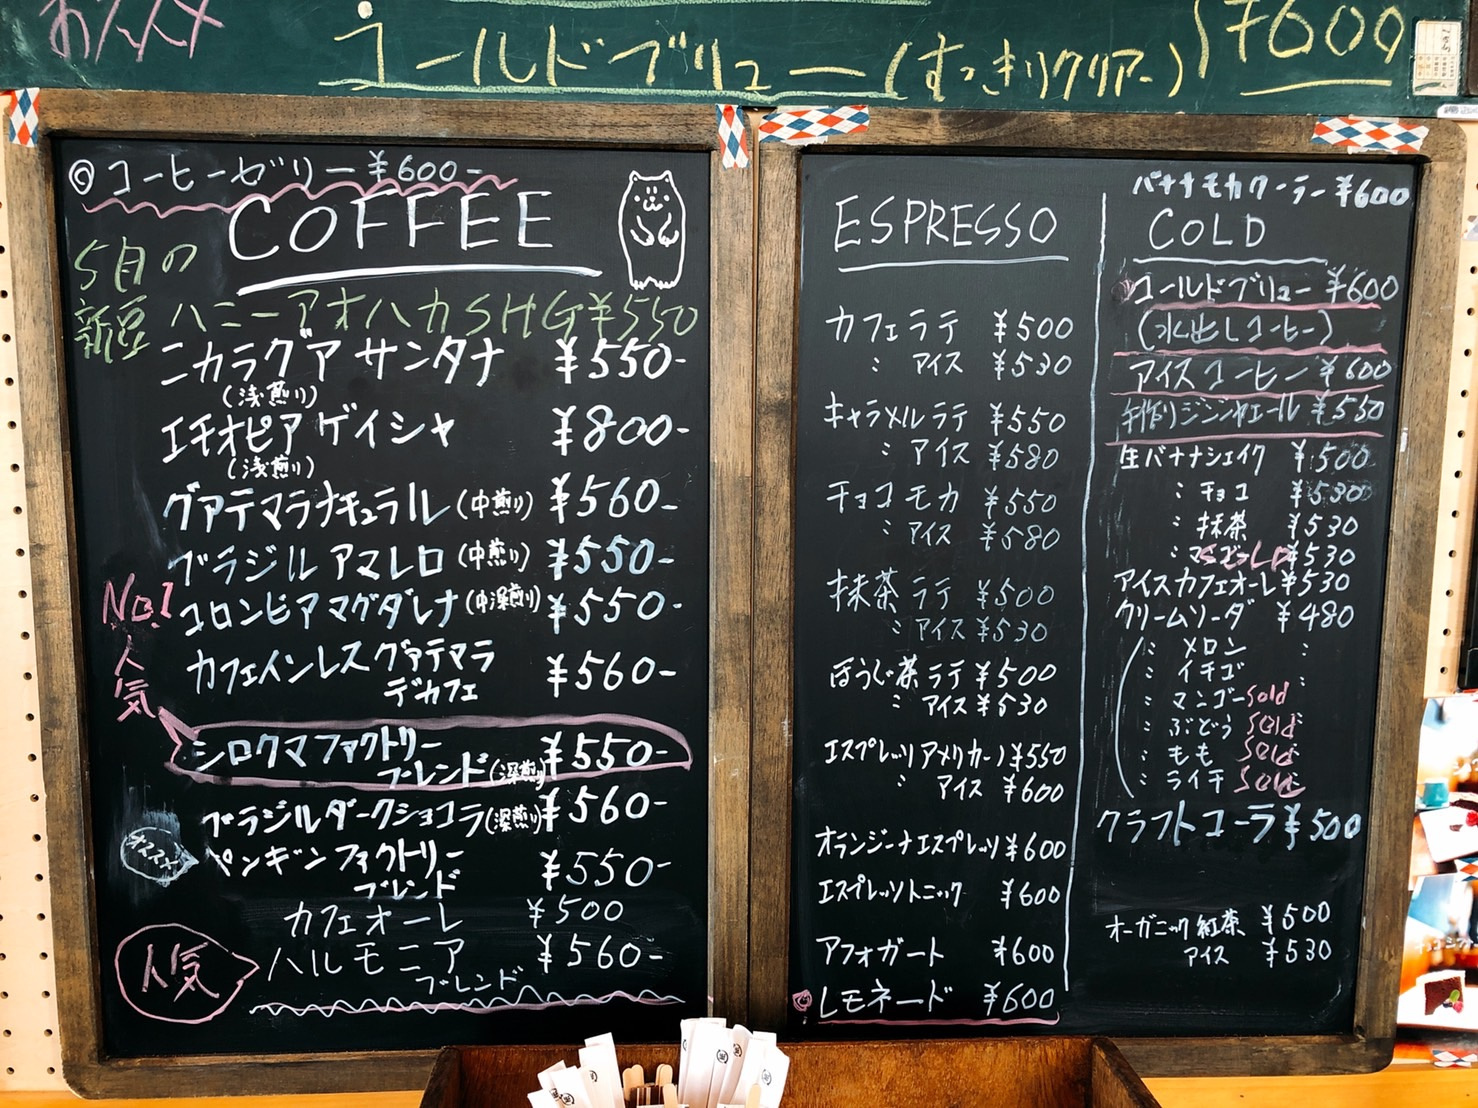 おススメ
コールドブリュー(すっきりクリアー) ¥600
◎コーヒーゼリー ¥600-
COFFEE
5月の
新豆
ハニーアオハカSHG ¥550
ニカラグア サンタナ ¥550-
(浅煎り)
エチオピア ゲイシャ ¥800-
(浅煎り)
グァテマラナチュラル(中煎り) ¥560-
ブラジル アマレロ(中煎り) ¥550-
コロンビア マグダレナ(中深煎り) ¥550-
カフェインレス グァテマラ
デカフェ ¥560-
No.1
人気
シロクマファクトリー
ブレンド(深煎り) ¥550-
ブラジルダークショコラ(深煎り) ¥560-
オススメ
ペンギンファクトリー
ブレンド ¥550-
カフェオーレ ¥500
人気
ハルモニア ¥560-
ブレンド
ESPRESSO
カフェラテ ¥500
: アイス ¥530
キャラメルラテ ¥550
: アイス ¥580
チョコモカ ¥550
: アイス ¥580
抹茶ラテ ¥500
: アイス ¥530
ほうじ茶ラテ ¥500
: アイス ¥530
エスプレッソアメリカーノ ¥550
: アイス ¥600
オランジーナエスプレッソ ¥600
エスプレッソトニック ¥600
アフォガート ¥600
レモネード ¥600
バナナモカクーラー ¥600
COLD
コールドブリュー ¥600
(水出しコーヒー)
アイスコーヒー ¥600
手作りジンジャエール ¥550
生バナナシェイク ¥500
: チョコ ¥530
: 抹茶 ¥530
¥530
アイスカフェオーレ ¥530
クリームソーダ ¥480
: メロン :
: イチゴ :
: マンゴー sold
: ぶどう sold
: もも sold
: ライチ sold
クラフトコーラ ¥500
オーガニック紅茶 ¥500
アイス ¥530